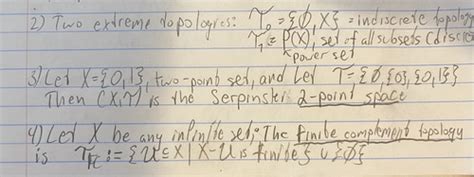 2) Two extreme topologies: 𝒯₀ = {∅, X} = indiscrete topology
𝒯₁ = P(X), set of all subsets (discrete
power set
3) Let X={0,1}, two-point set, and let 𝒯={∅,{0},{0,1}}
Then (X,𝒯) is the Serpinski 2-point space
4) Let X be any infinite set. The finite complement topology
is 𝒯fc := {U⊆X | X-U is finite} ∪ {∅}